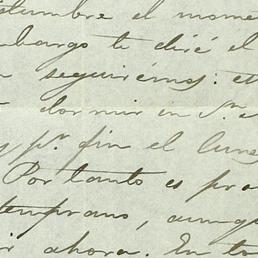 tumbre el mome
mbargo te diré el
seguirémos: es
dormir in S.n
, pr. fin el lunes
Por tanto es pro
temprano, aunqu
ir ahora. En to